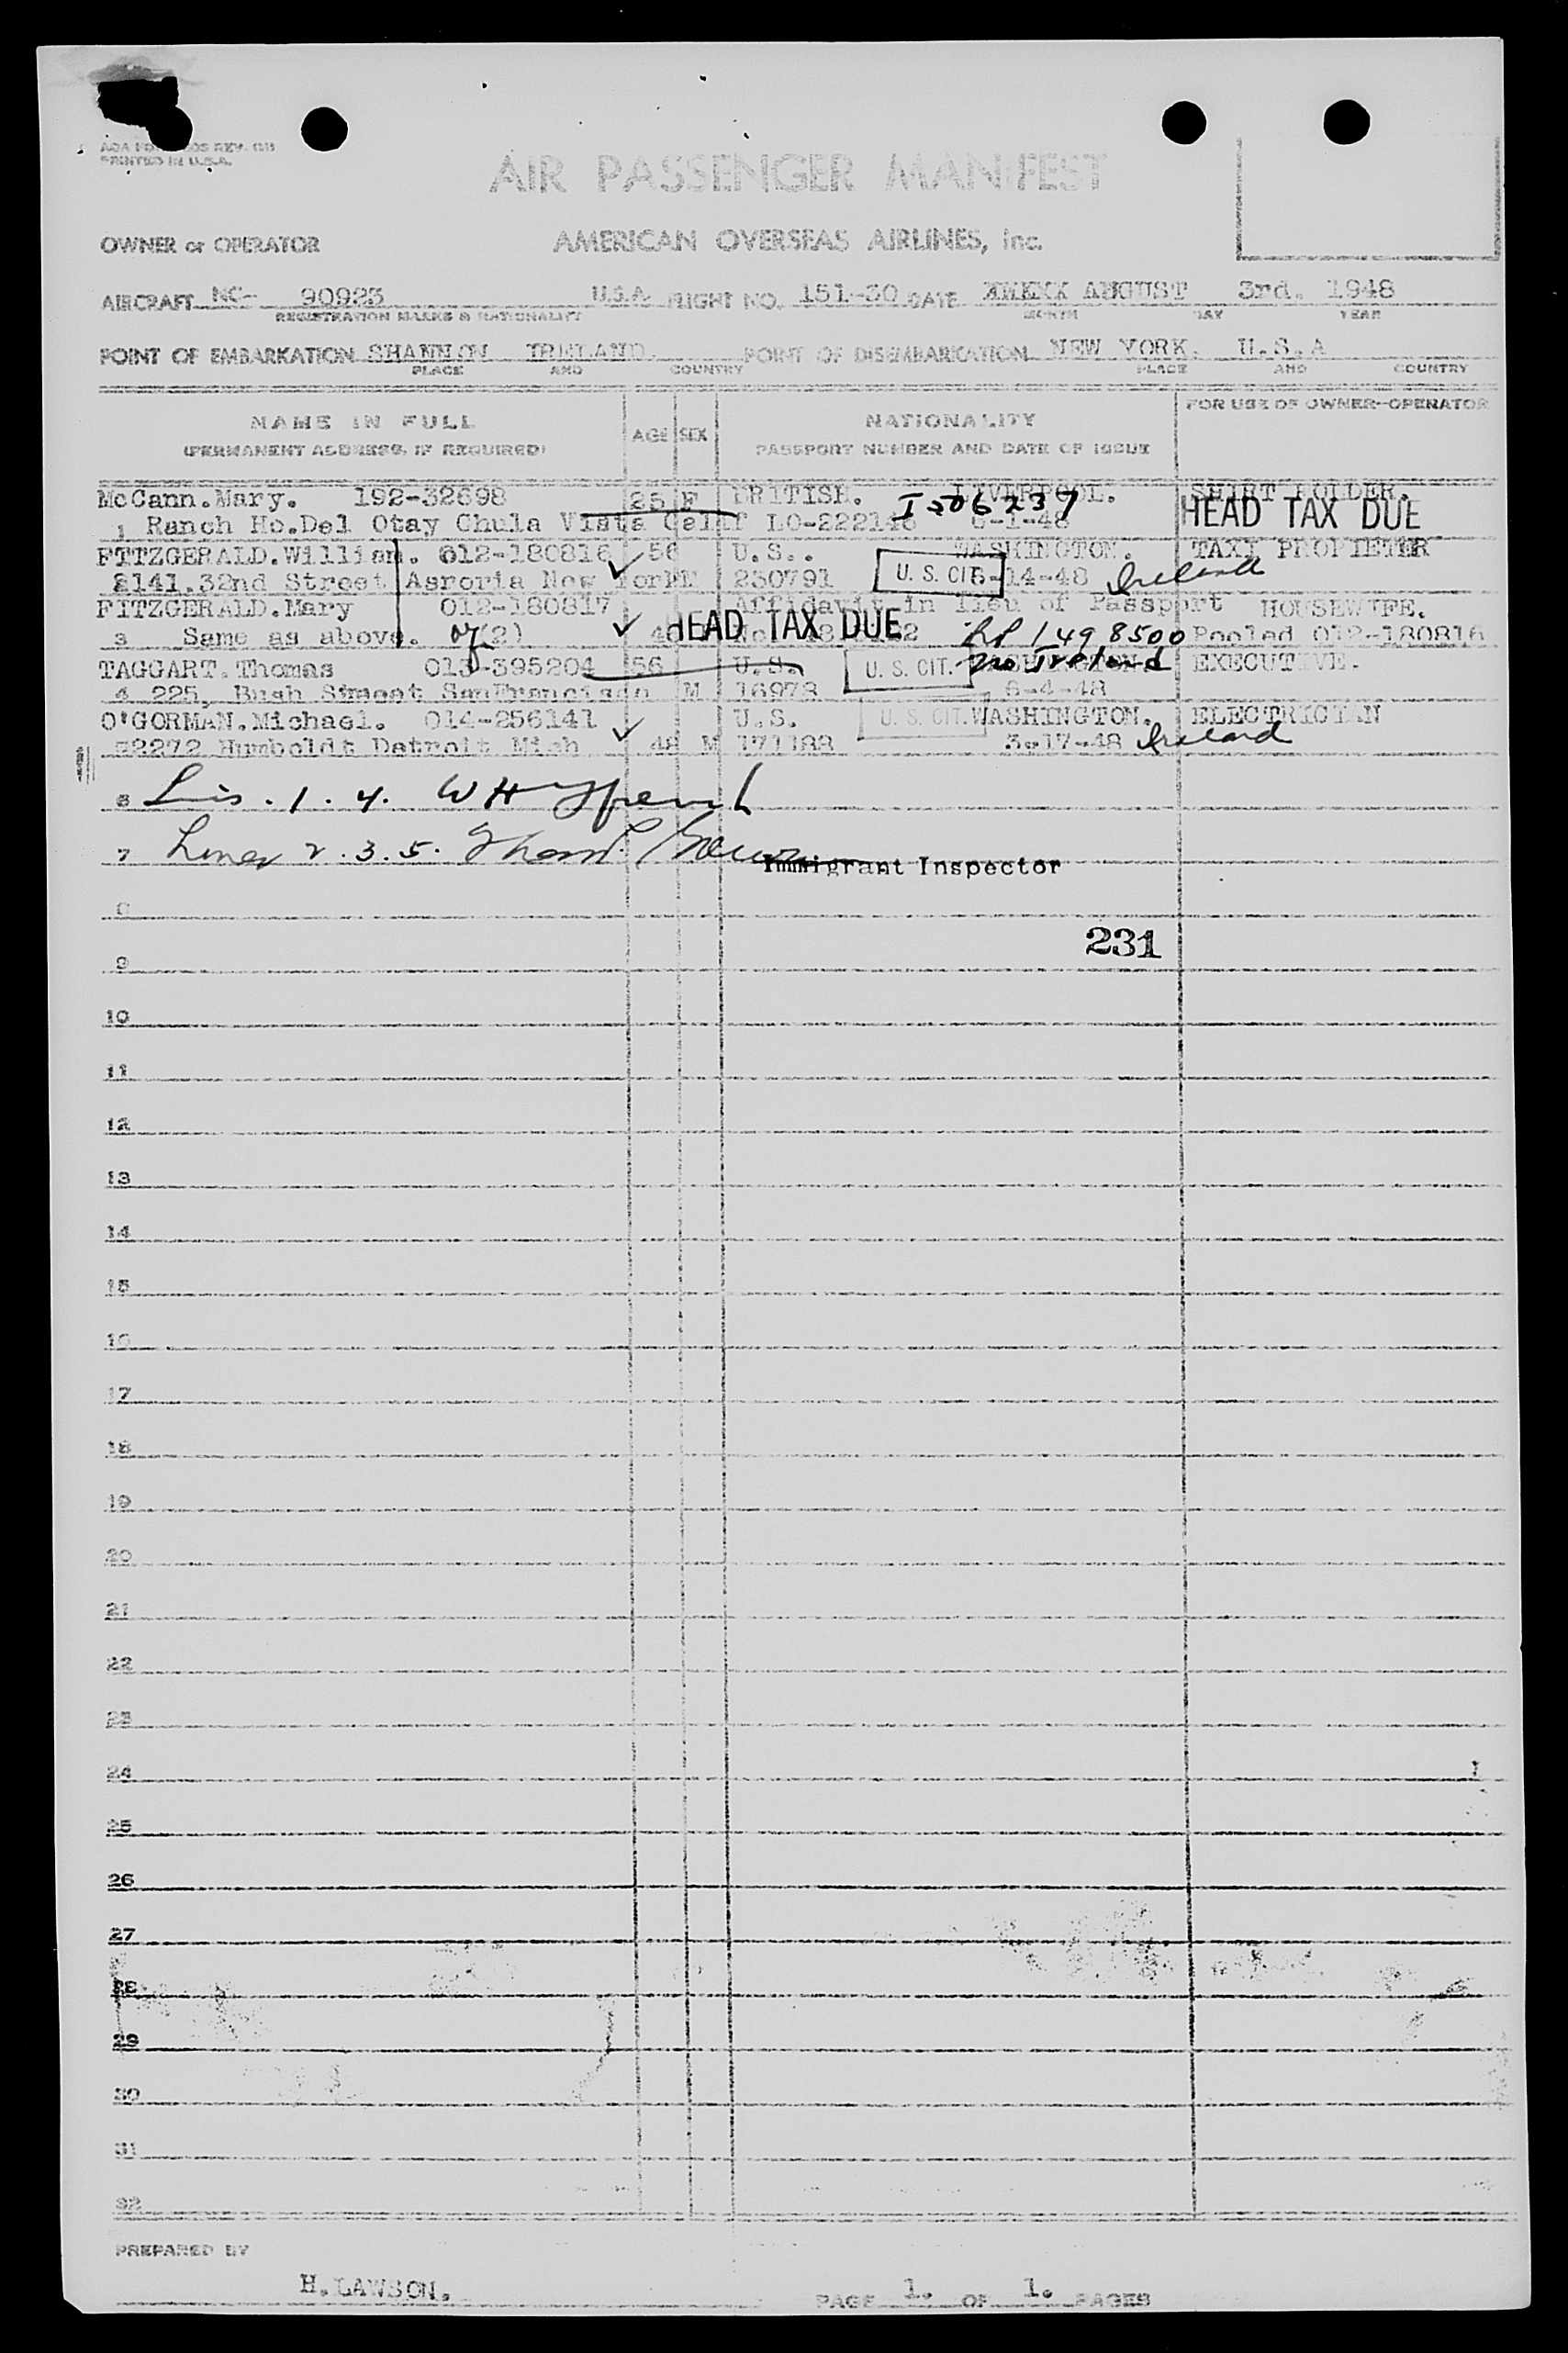 PRINTED IN U.S.A.
AIR PASSENGER MANIFEST
OWNER or OPERATOR AMERICAN OVERSEAS AIRLINES, Inc.
AIRCRAFT NC- 90923 U.S.A FLIGHT NO. 151-30 DATE AUGUST 3rd. 1948
REGISTRATION MARKS & NATIONALITY MONTH DAY YEAR
POINT OF EMBARKATION SHANNON IRELAND. POINT OF DISEMBARKATION NEW YORK. U.S.A
PLACE AND COUNTRY PLACE AND COUNTRY
NAME IN FULL AGE SEX NATIONALITY FOR USE OF OWNER-OPERATOR
(PERMANENT ADDRESS, IF REQUIRED) PASSPORT NUMBER AND DATE OF ISSUE
McCann.Mary. 192-32698 25 F BRITISH. LIVERPOOL. I506237 SHIRT FOLDER.
1 Ranch Ho.Del Otay Chula Vista Calif LO-222146 6-1-48 HEAD TAX DUE
FITZGERALD.William. 012-180816 56 U.S.. WASHINGTON. TAXI PROPIETER
2141.32nd Street Asroria New York M 230791 U. S. CIT. 6-14-48 Ireland
FITZGERALD.Mary 012-180817 Affidavit in lieu of Passport HOUSEWIFE.
3 Same as above. of (2) HEAD TAX DUE RP 1498500 Pooled 012-180816
TAGGART.Thomas 013-395204 56 U.S. U. S. CIT. WASHINGTON. no Ireland EXECUTIVE.
4 225, Bush Street SanFrancisco M 16973 6-4-48
O'GORMAN.Michael. 014-256141 U.S. U. S. CIT. WASHINGTON. ELECTRICIAN
2272 Humboldt Detroit Mich 48 M 171188 3-17-48 Ireland
6 Lis. 1. 4. W H
7 Lines 2. 3. 5.
Immigrant Inspector
8
231
9
10
11
12
13
14
15
16
17
18
19
20
21
22
23
24
25
26
27
28
29
30
31
32
PREPARED BY
H.LAWSON. PAGE 1. OF 1. PAGES